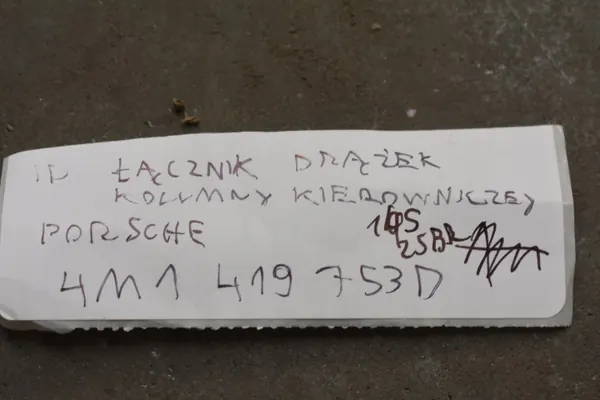 ŁĄCZNIK DRĄŻEK
KOLUMNY KIEROWNICZEJ
PORSCHE
4M1 419 753D